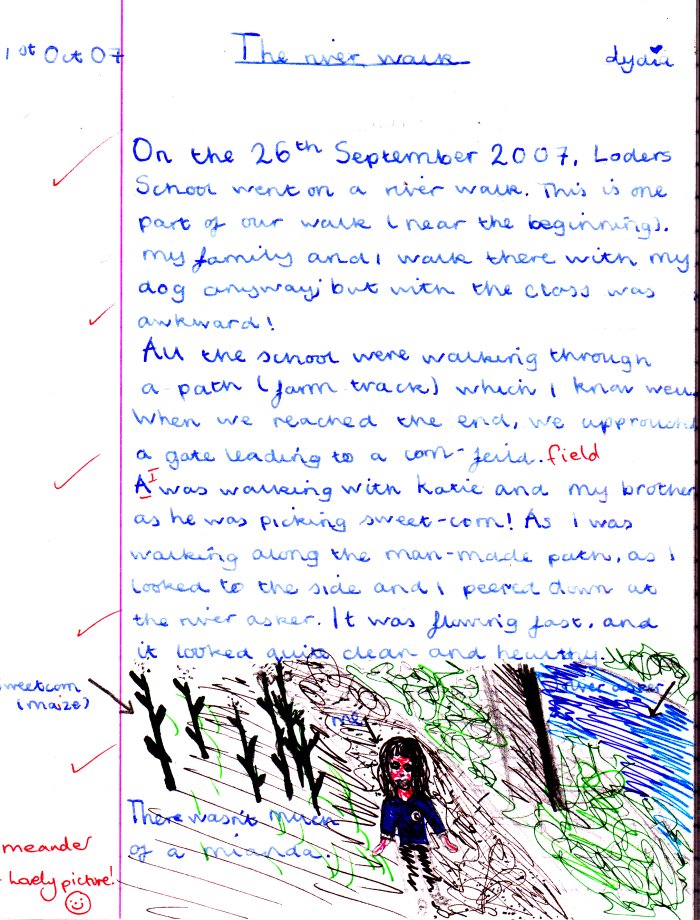 1st Oct 07
The river walk
Lydia
On the 26th September 2007, Loders
School went on a river walk. This is one
part of our walk (near the beginning).
my family and I walk there with my
dog anyway; but with the class was
awkward!
All the school were walking through
a path (farm track) which I know well
When we reached the end, we approuch
a gate leading to a corn-feild. field
A I was walking with Katie and my brother
as he was picking sweet-corn! As I was
walking along the man-made path, as I
looked to the side and I peered down at
the river asker. It was flowing fast, and
it looked quite clean and healthy.
sweetcorn
(maize)
(me)
River asker
There wasn't much
of a mianda.
meander
Lovely picture!